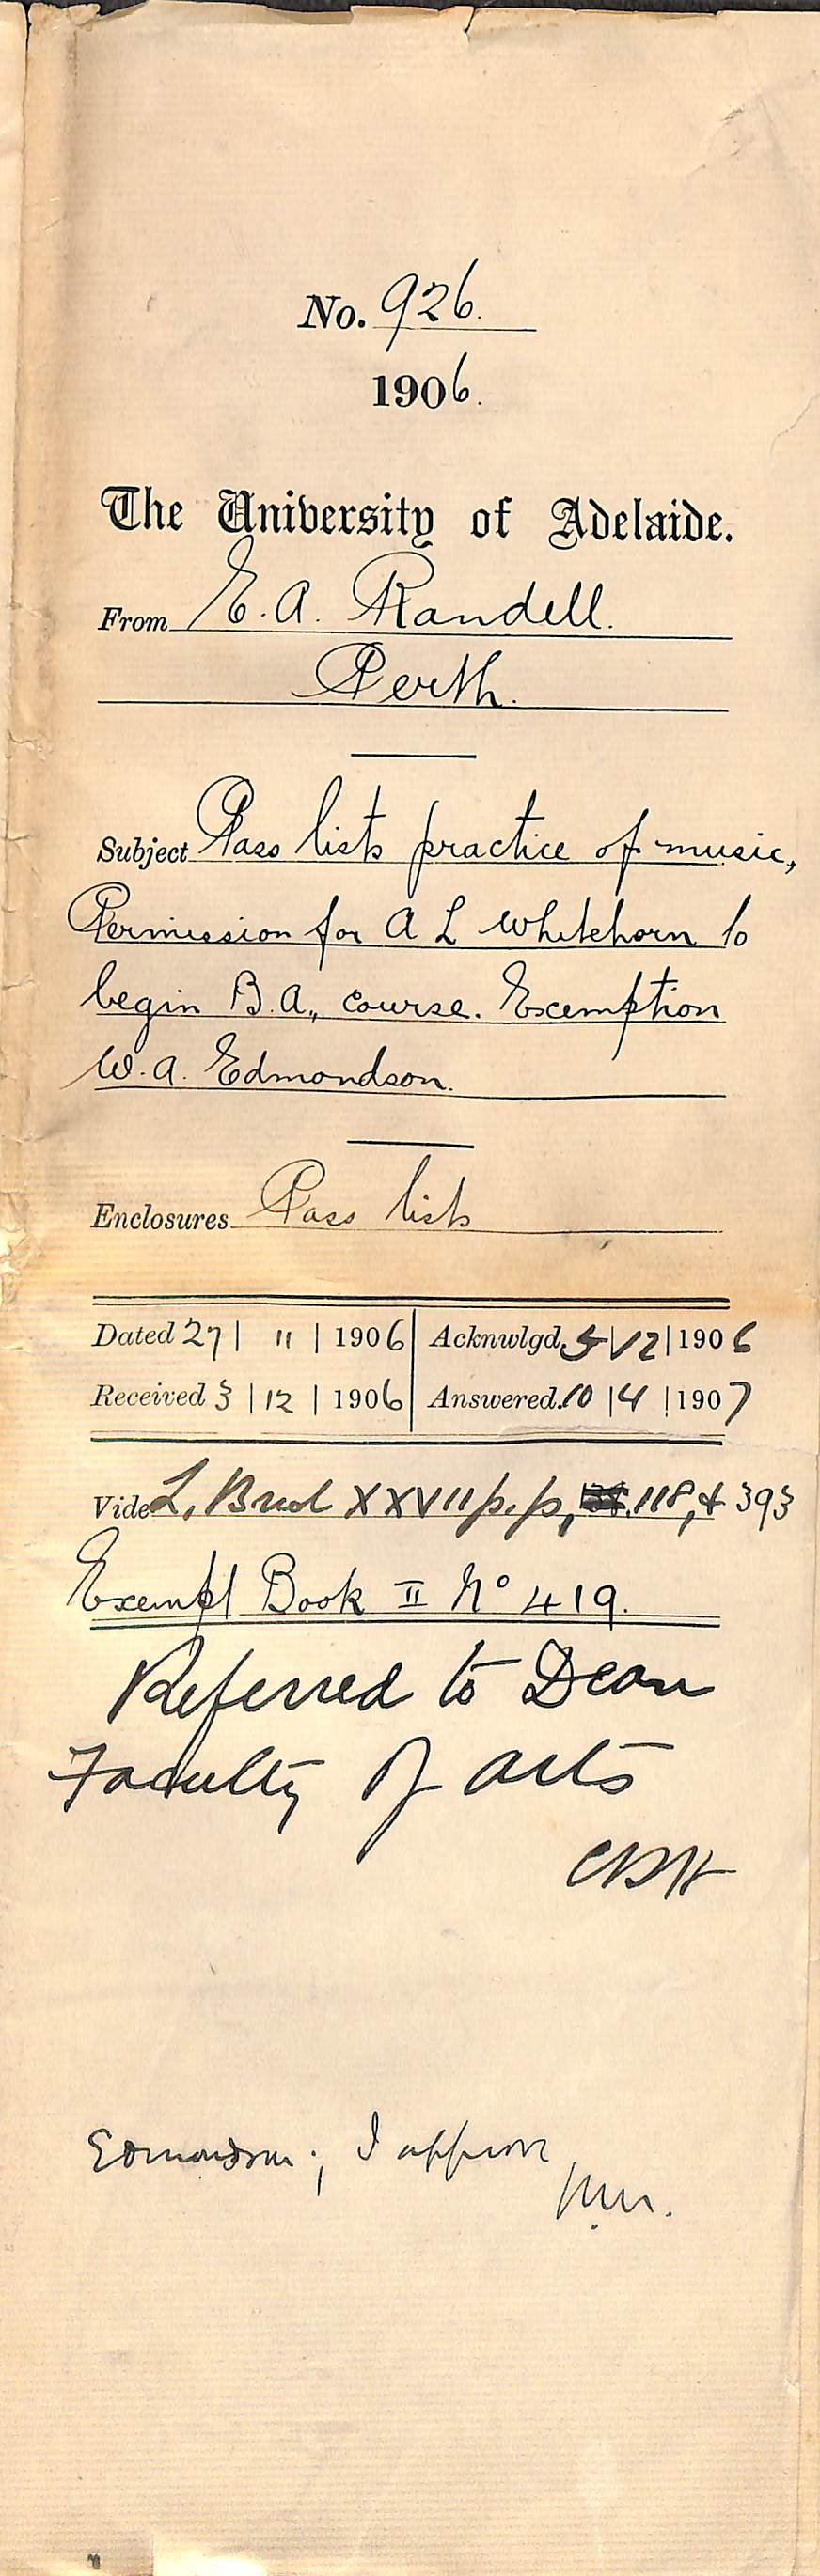 No. 926.
1906.
The University of Adelaide.
From E. A. Randell.
Perth.
Subject Pass lists practice of music,
Permission for A L Whitehorn to
begin B.A., course. Exemption
W. A. Edmondson.
Enclosures Pass lists
Dated 27 | 11 | 1906 Acknwlgd. 5 | 12 | 1906
Received 3 | 12 | 1906 Answered. 10 | 4 | 1907
Vide L. XXVII p.p, 118, & 393
Exempt Book II No 419.
Referred to Dean
Faculty of Arts
Edmondson; I approve